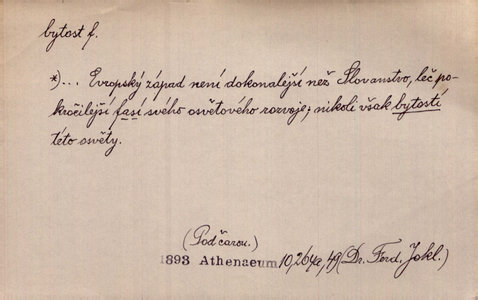 bytost f.
*)... Evropský západ není dokonalejší než Slovanstvo, leč po-
kročilejší fasí svého osvětového rozvoje, nikoli však bytostí
této osvěty.
(Pod čarou.)
1893 Athenaeum 10,264a, 49 (Dr. Ferd. Jokl.)